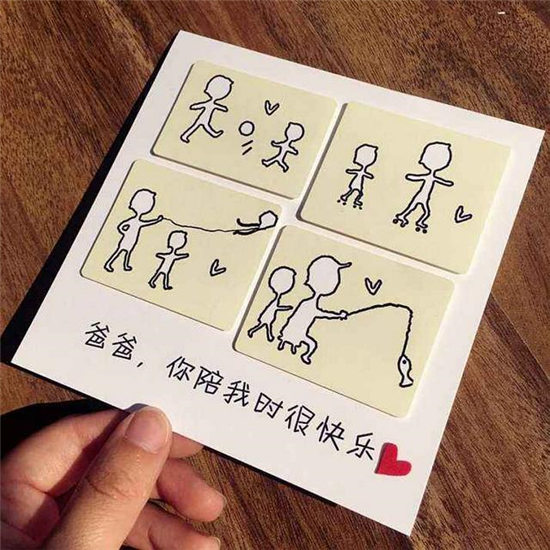 爸爸，你陪我时很快乐